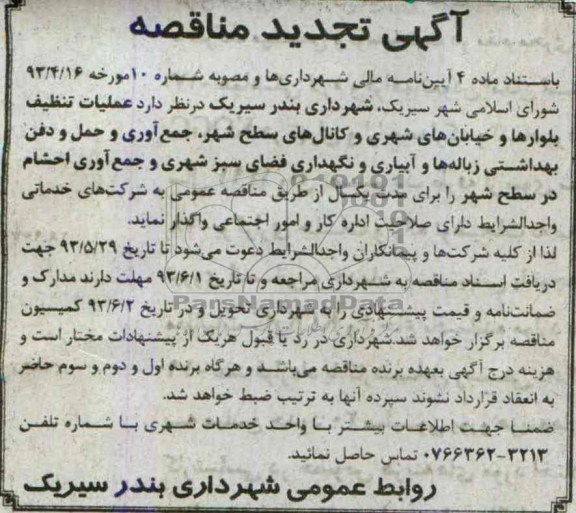 آگهی تجدید مناقصه
باستناد ماده ۴ آیین‌نامه مالی شهرداری‌ها و مصوبه شماره ۱۰مورخه ۹۳/۴/۱۶
شورای اسلامی شهر سیریک، شهرداری بندر سیریک درنظر دارد عملیات تنظیف
بلوارها و خیابان‌های شهری و کانال‌های سطح شهر، جمع‌آوری و حمل و دفن
بهداشتی زباله‌ها و آبیاری و نگهداری فضای سبز شهری و جمع‌آوری احشام
در سطح شهر را برای مدت یکسال از طریق مناقصه عمومی به شرکت‌های خدماتی
واجدالشرایط دارای صلاحیت اداره کار و امور اجتماعی واگذار نماید.
لذا از کلیه شرکت‌ها و پیمانکاران واجدالشرایط دعوت می‌شود تا تاریخ ۹۳/۵/۲۹ جهت
دریافت اسناد مناقصه به شهرداری مراجعه و تا تاریخ ۹۳/۶/۱ مهلت دارند مدارک و
ضمانت‌نامه و قیمت پیشنهادی را به شهرداری تحویل و در تاریخ ۹۳/۶/۲ کمیسیون
ParsNamadData
مناقصه برگزار خواهد شد.شهرداری در رد یا قبول هریک از پیشنهادات مختار است و
هزینه درج آگهی بعهده برنده مناقصه می‌باشد و هرگاه برنده اول و دوم و سوم حاضر
به انعقاد قرارداد نشوند سپرده آنها به ترتیب ضبط خواهد شد.
ضمنا جهت اطلاعات بیشتر با واحد خدمات شهری با شماره تلفن
۰۷۶۶۳۶۲-۳۲۱۳ تماس حاصل نمائید.
روابط عمومی شهرداری بندر سیریک